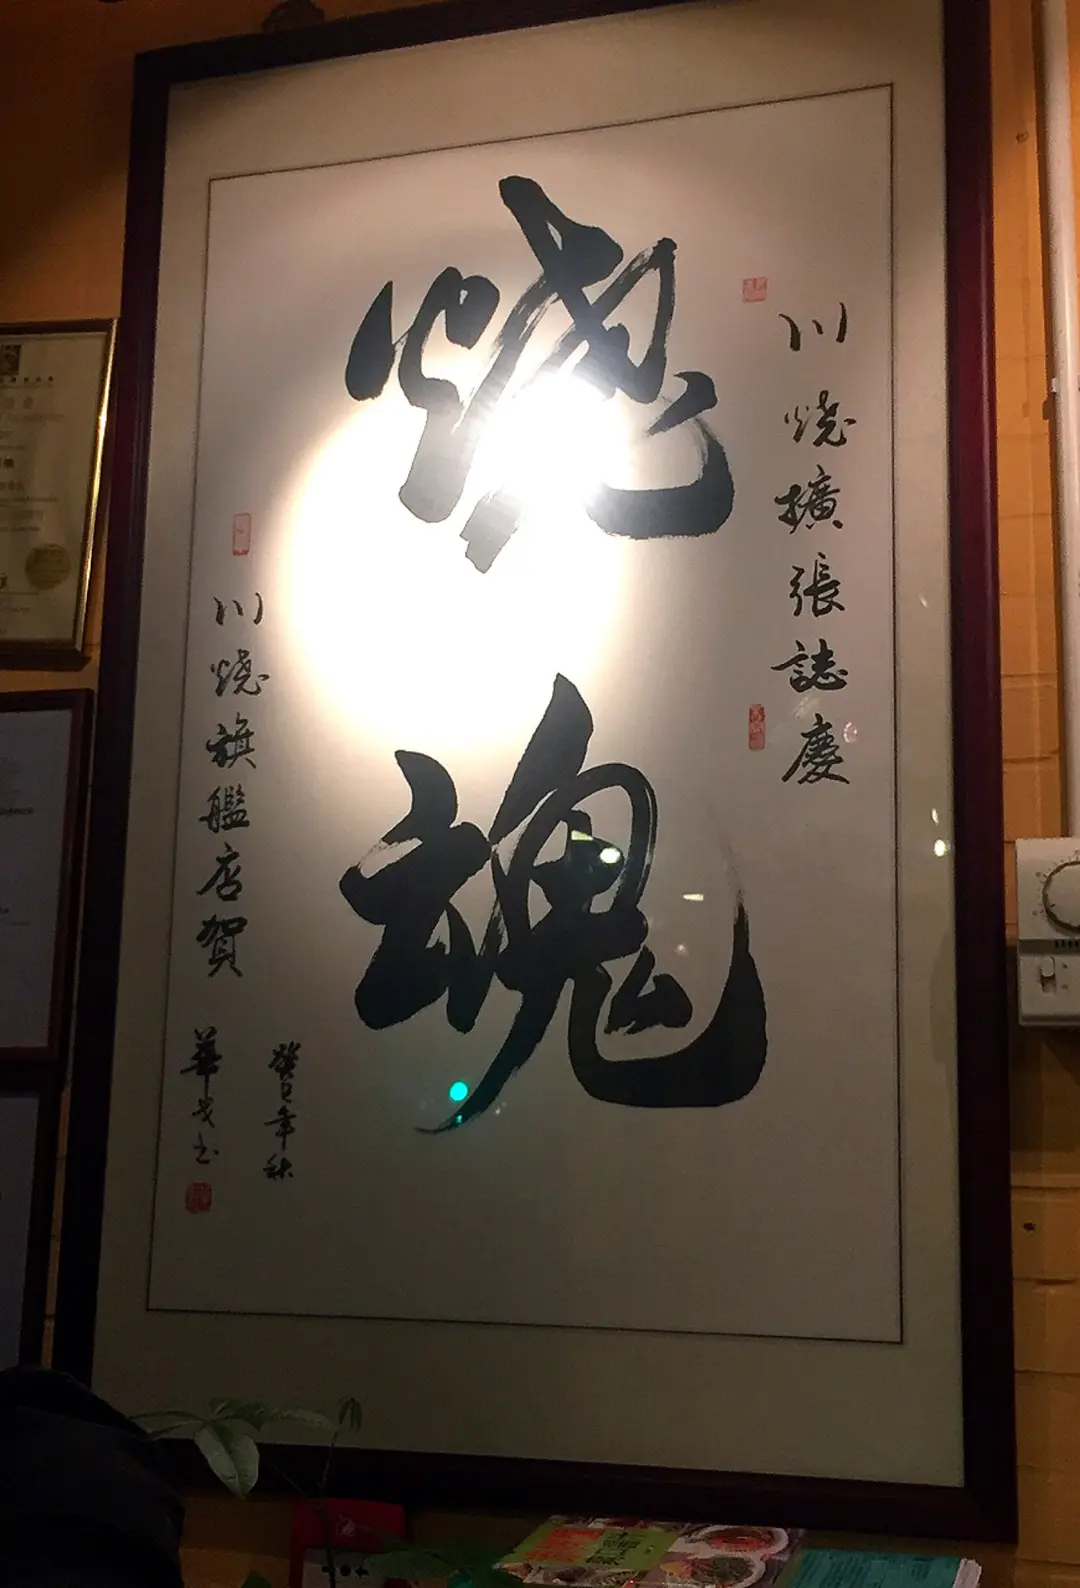 川燒擴張誌慶
燒魂
川燒旗艦店賀
癸巳年秋
華戈书